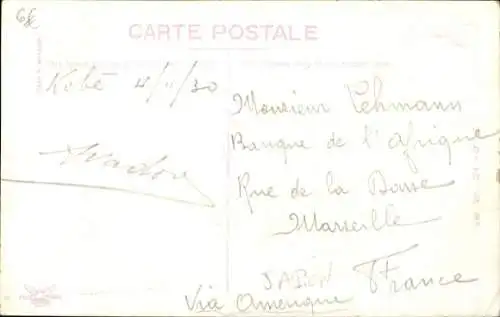 6£
CARTE POSTALE
Kobé 4/11/30
Monsieur Lehmann
Banque de l'Afrique
Rue de la Bourse
Marseille
JAPON France
Via Amérique